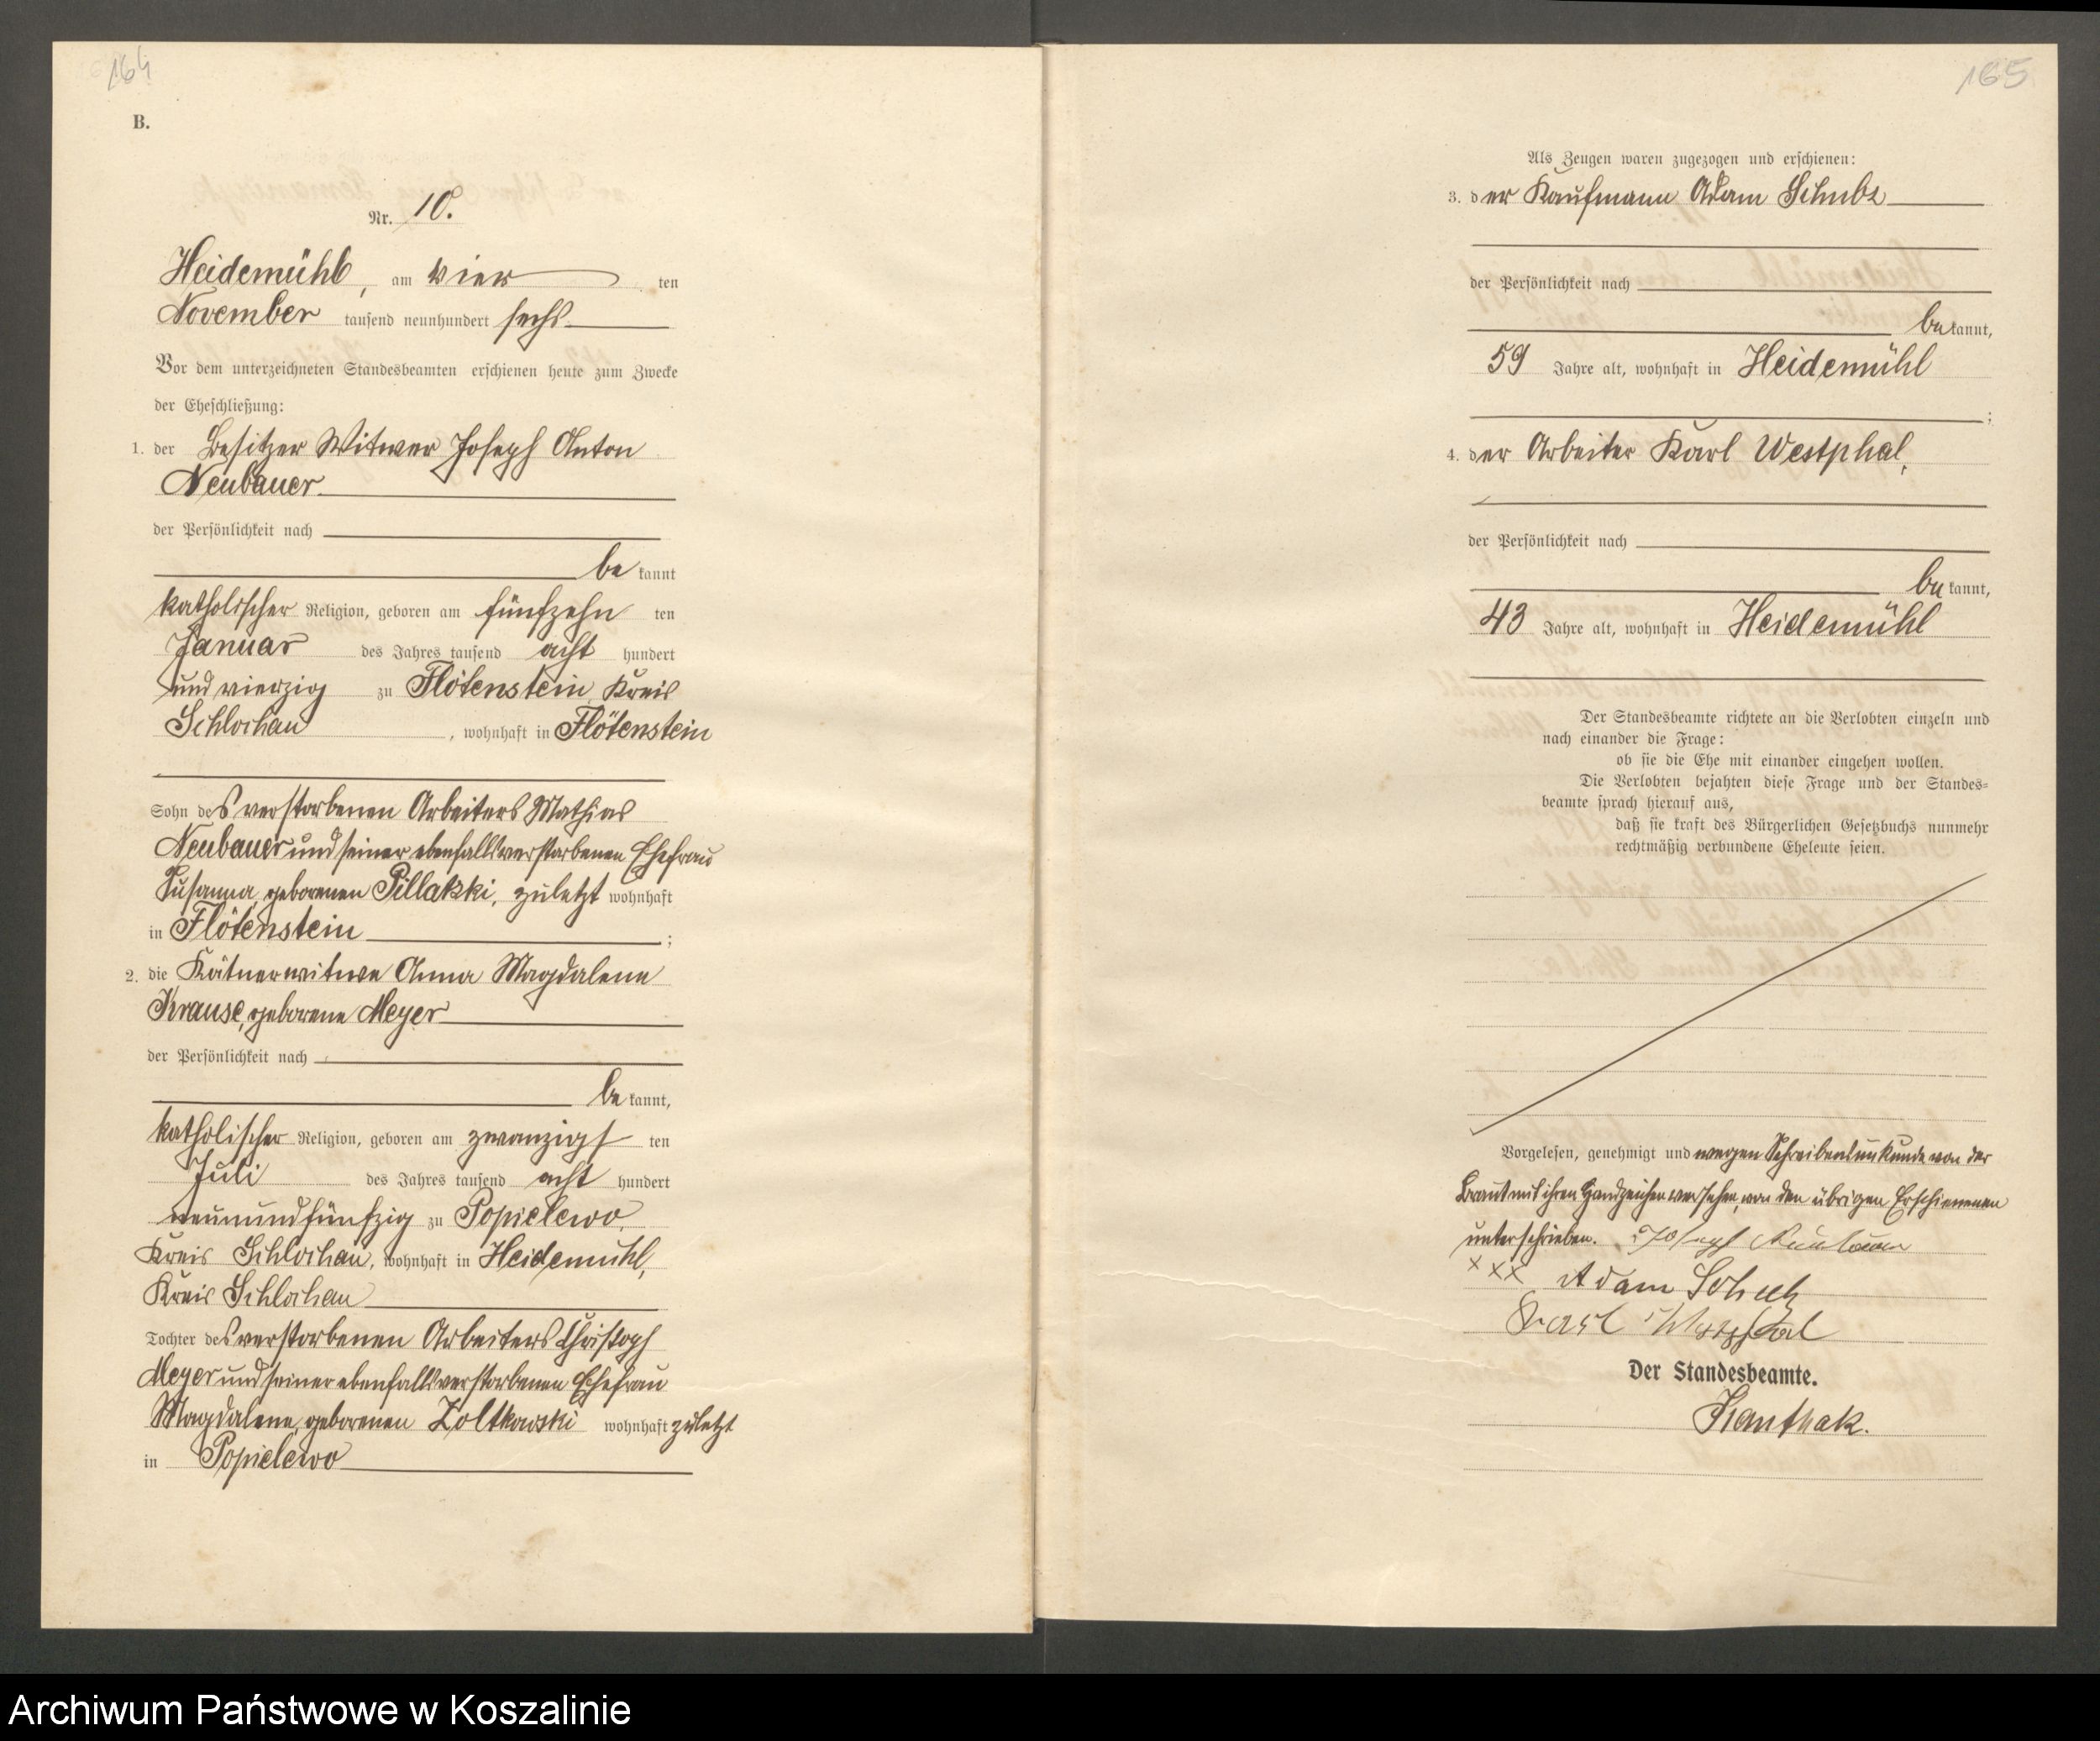 164
B.
Nr. 10.
Heidemühl, am vier ten
November tausend neunhundert sechs
Vor dem unterzeichneten Standesbeamten erschienen heute zum Zwecke
der Eheschließung:
1. der Besitzer Witwer Joseph Anton
Neubauer
der Persönlichkeit nach
be kannt
katholischer Religion, geboren am fünfzehn ten
Januar des Jahres tausend acht hundert
und vierzig zu Flötenstein Kreis
Schlochau, wohnhaft in Flötenstein
Sohn des verstorbenen Arbeiters Mathias
Neubauer und seiner ebenfalls verstorbenen Ehefrau
Susanna, geborenen Pillakski, zuletzt wohnhaft
in Flötenstein ;
2. die Kätnerwitwe Anna Magdalene
Krause, geborene Meyer
der Persönlichkeit nach
be kannt,
katholischer Religion, geboren am zwanzigs ten
Juli des Jahres tausend acht hundert
neunundfünfzig zu Popielewo,
Kreis Schlochau, wohnhaft in Heidemühl,
Kreis Schlochau
Tochter des verstorbenen Arbeiters Christoph
Meyer und seiner ebenfalls verstorbenen Ehefrau
Magdalene, geborenen Zoltkowski wohnhaft zuletzt
in Popielewo
165
Als Zeugen waren zugezogen und erschienen:
3. der Kaufmann Adam
der Persönlichkeit nach
be kannt,
59 Jahre alt, wohnhaft in Heidemühl
;
4. der Arbeiter Karl Westphal,
der Persönlichkeit nach
be kannt,
43 Jahre alt, wohnhaft in Heidemühl
Der Standesbeamte richtete an die Verlobten einzeln und
nach einander die Frage:
ob sie die Ehe mit einander eingehen wollen.
Die Verlobten bejahten diese Frage und der Standes-
beamte sprach hierauf aus,
daß sie kraft des Bürgerlichen Gesetzbuchs nunmehr
rechtmäßig verbundene Eheleute seien.
Vorgelesen, genehmigt und wegen Schreibensunkunde von der
Braut mit ihren Handzeichen versehen, von den übrigen Erschienenen
unterschrieben. Joseph Neubauer
xxx Adam
Karl Westphal
Der Standesbeamte.
Kanthak.
Archiwum Państwowe w Koszalinie